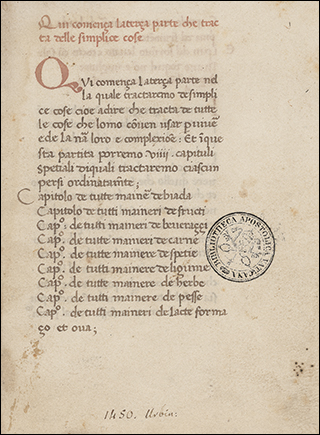 Qui comença la terça parte che trac
ta delle simplice cose
QVi comença la terça parte nel
la quale tractaremo de simpli
ce cose cioe adire che tracta de tutte
le cose che lomo cõuen usar p̱ uiuẽ
e de la nãa loro e complexiõe: Et ĩ que
sta partita porremo viiij. capituli
spetiali di quali tractaremo ciascun
persi ordinatamẽte;
Capitolo de tutte mainẽ de biada
Capitolo de tutti maineri de fructi
Capº. de tutti maineri de beueraggi
Capº. de tutte maineri de carne
Capº. de tutte mainere de spetie
Capº. de tutti mainere de
Capº. de tutte mainere de herbe
Capº. de tutti mainere de pesse
Capº. de tutti maineri de lacte forma
gio et oua;
BIBLIOTHECA APOSTOLICA VATICANA
1450. Urbin: